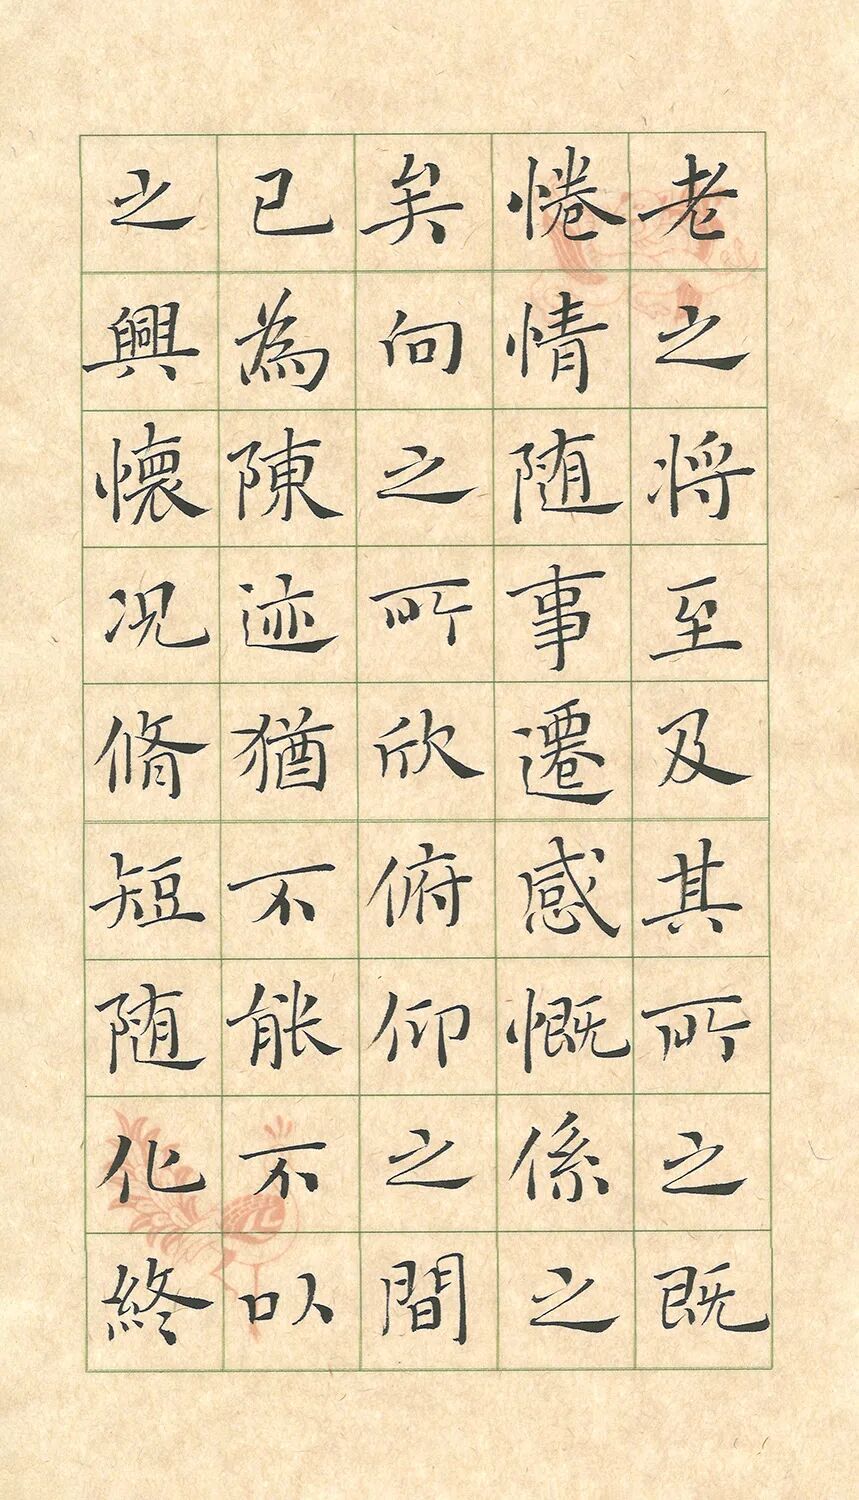 老之将至及其所之既
惓情随事遷感慨係之
矣向之所欣俯仰之間
已為陳迹猶不能不以
之興懷况脩短随化終